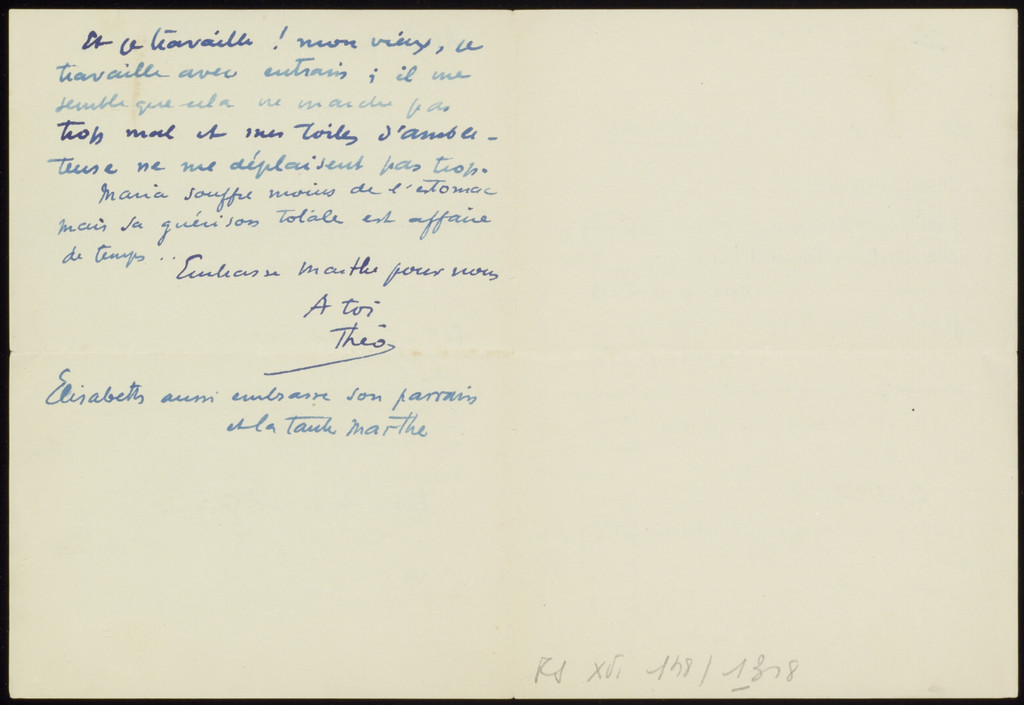 Et je travaille ! mon vieux, je
travaille avec entrain ; il me
semble que cela ne marche pas
trop mal et mes toiles d'amble-
teuse ne me déplaisent pas trop.
Maria souffre moins de l'estomac
mais sa guérison totale est affaire
de temps ..
Embrasse Marthe pour nous
A toi
Théo
Elisabeth aussi embrasse son parrain
et la tante Marthe
FS XVI 148/